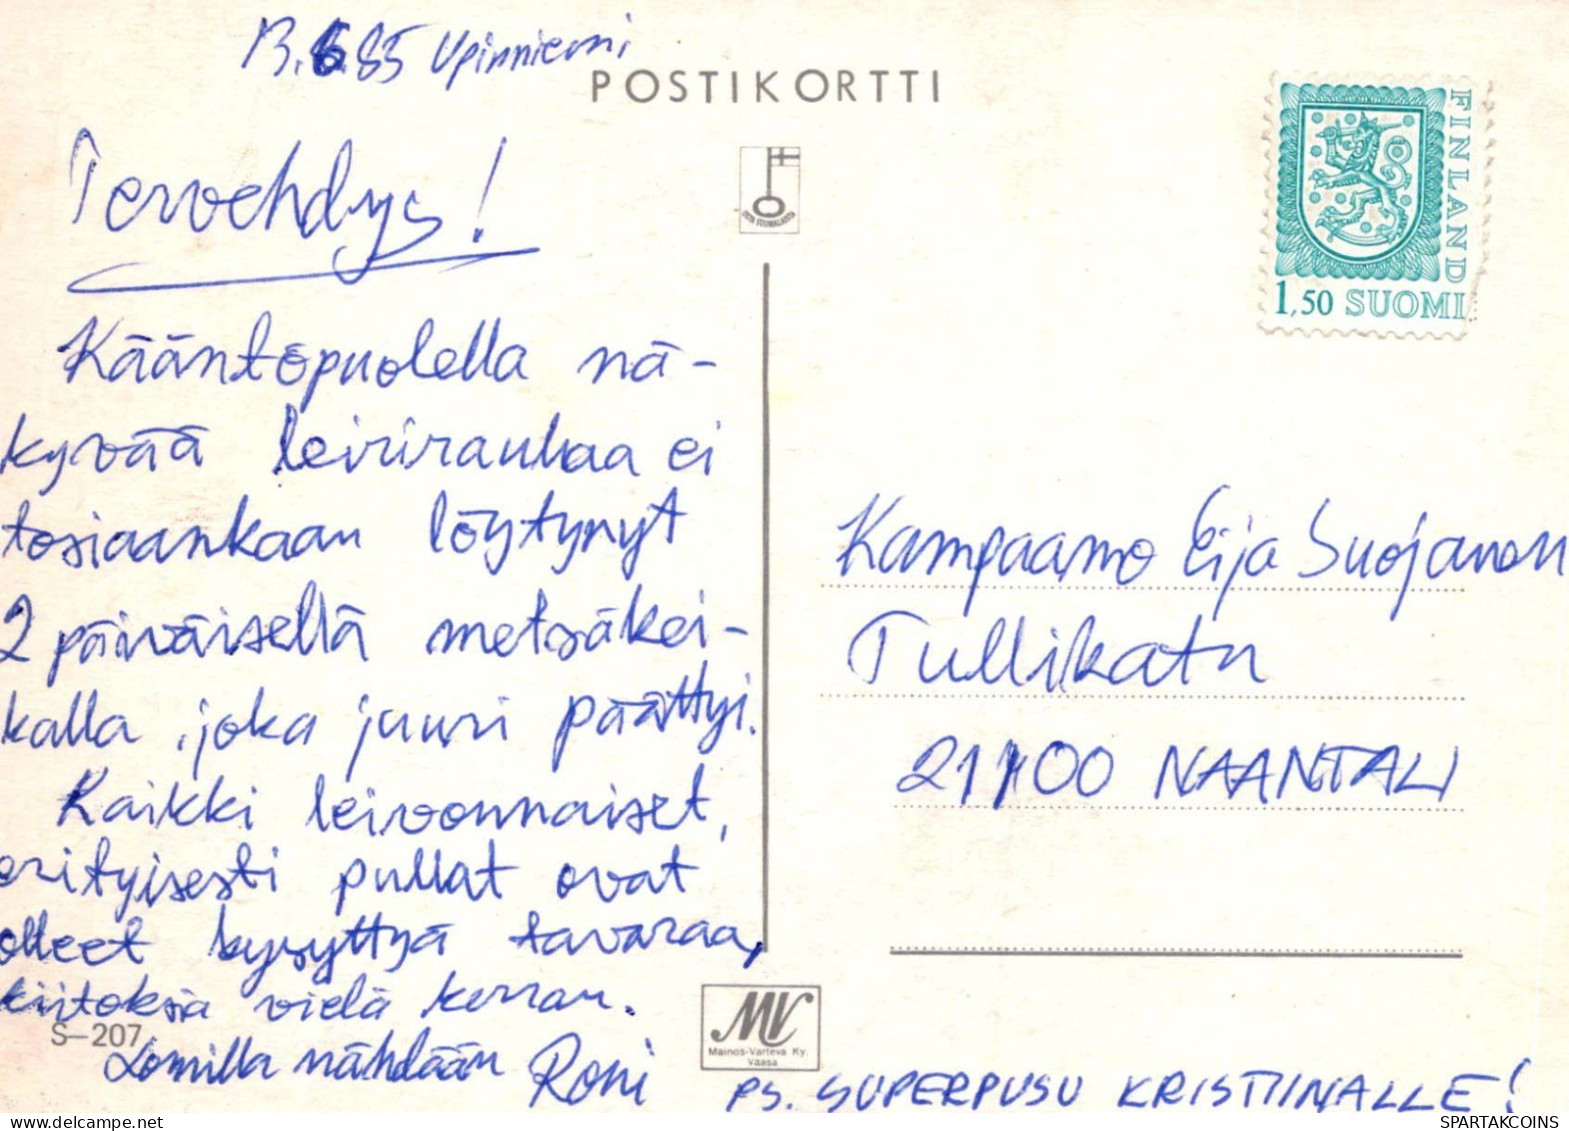 13.6.85 Upinniemi
POSTIKORTTI
FINLAND
1,50 SUOMI
Tervehdys!
Kääntöpuolella nä-
kyvää leirirauhaa ei
tosiaankaan löytynyt
2 päiväisellä metsäkei-
kalla, joka juuri päättyi.
Kaikki leivonnaiset,
erityisesti pullat ovat
olleet kysyttyä tavaraa,
kiitoksia vielä kerran.
S-207
Lomilla nähdään Roni
Kampaamo Eija Suojanen
Tullikatu
21100 NAANTALI
MV
Mainos-Varteva Ky.
Vaasa
PS. SUPERPUSU KRISTIINALLE!
SPARTAKCOINS
delcampe.net